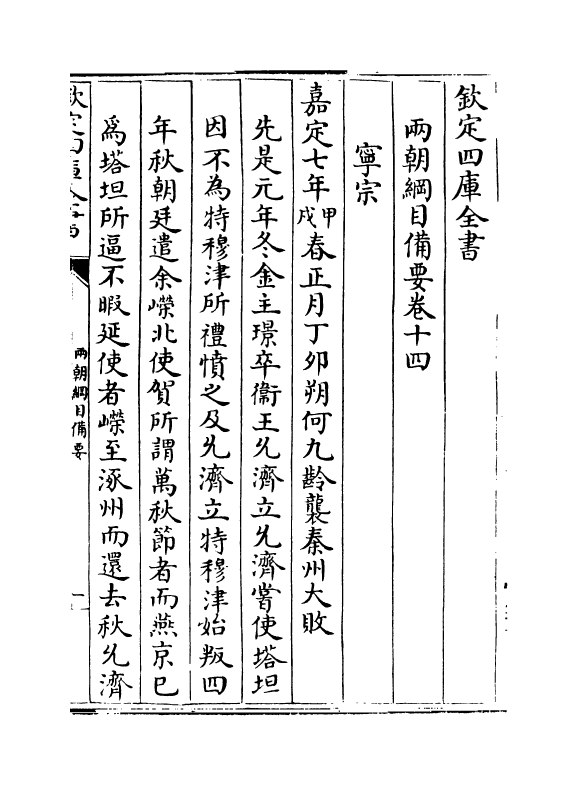 欽定四庫全書
兩朝綱目備要卷十四
寧宗
嘉定七年甲戌春正月丁夘朔何九齡襲秦州大敗
先是元年冬金主璟卒衞王允濟立允濟嘗使塔坦
因不為特穆津所禮憤之及允濟立特穆津始叛四
年秋朝廷遣余嶸北使賀所謂萬秋節者而燕京已
爲塔坦所逼不暇延使者嶸至涿州而還去秋允濟
欽定四庫全書
兩朝綱目備要
一